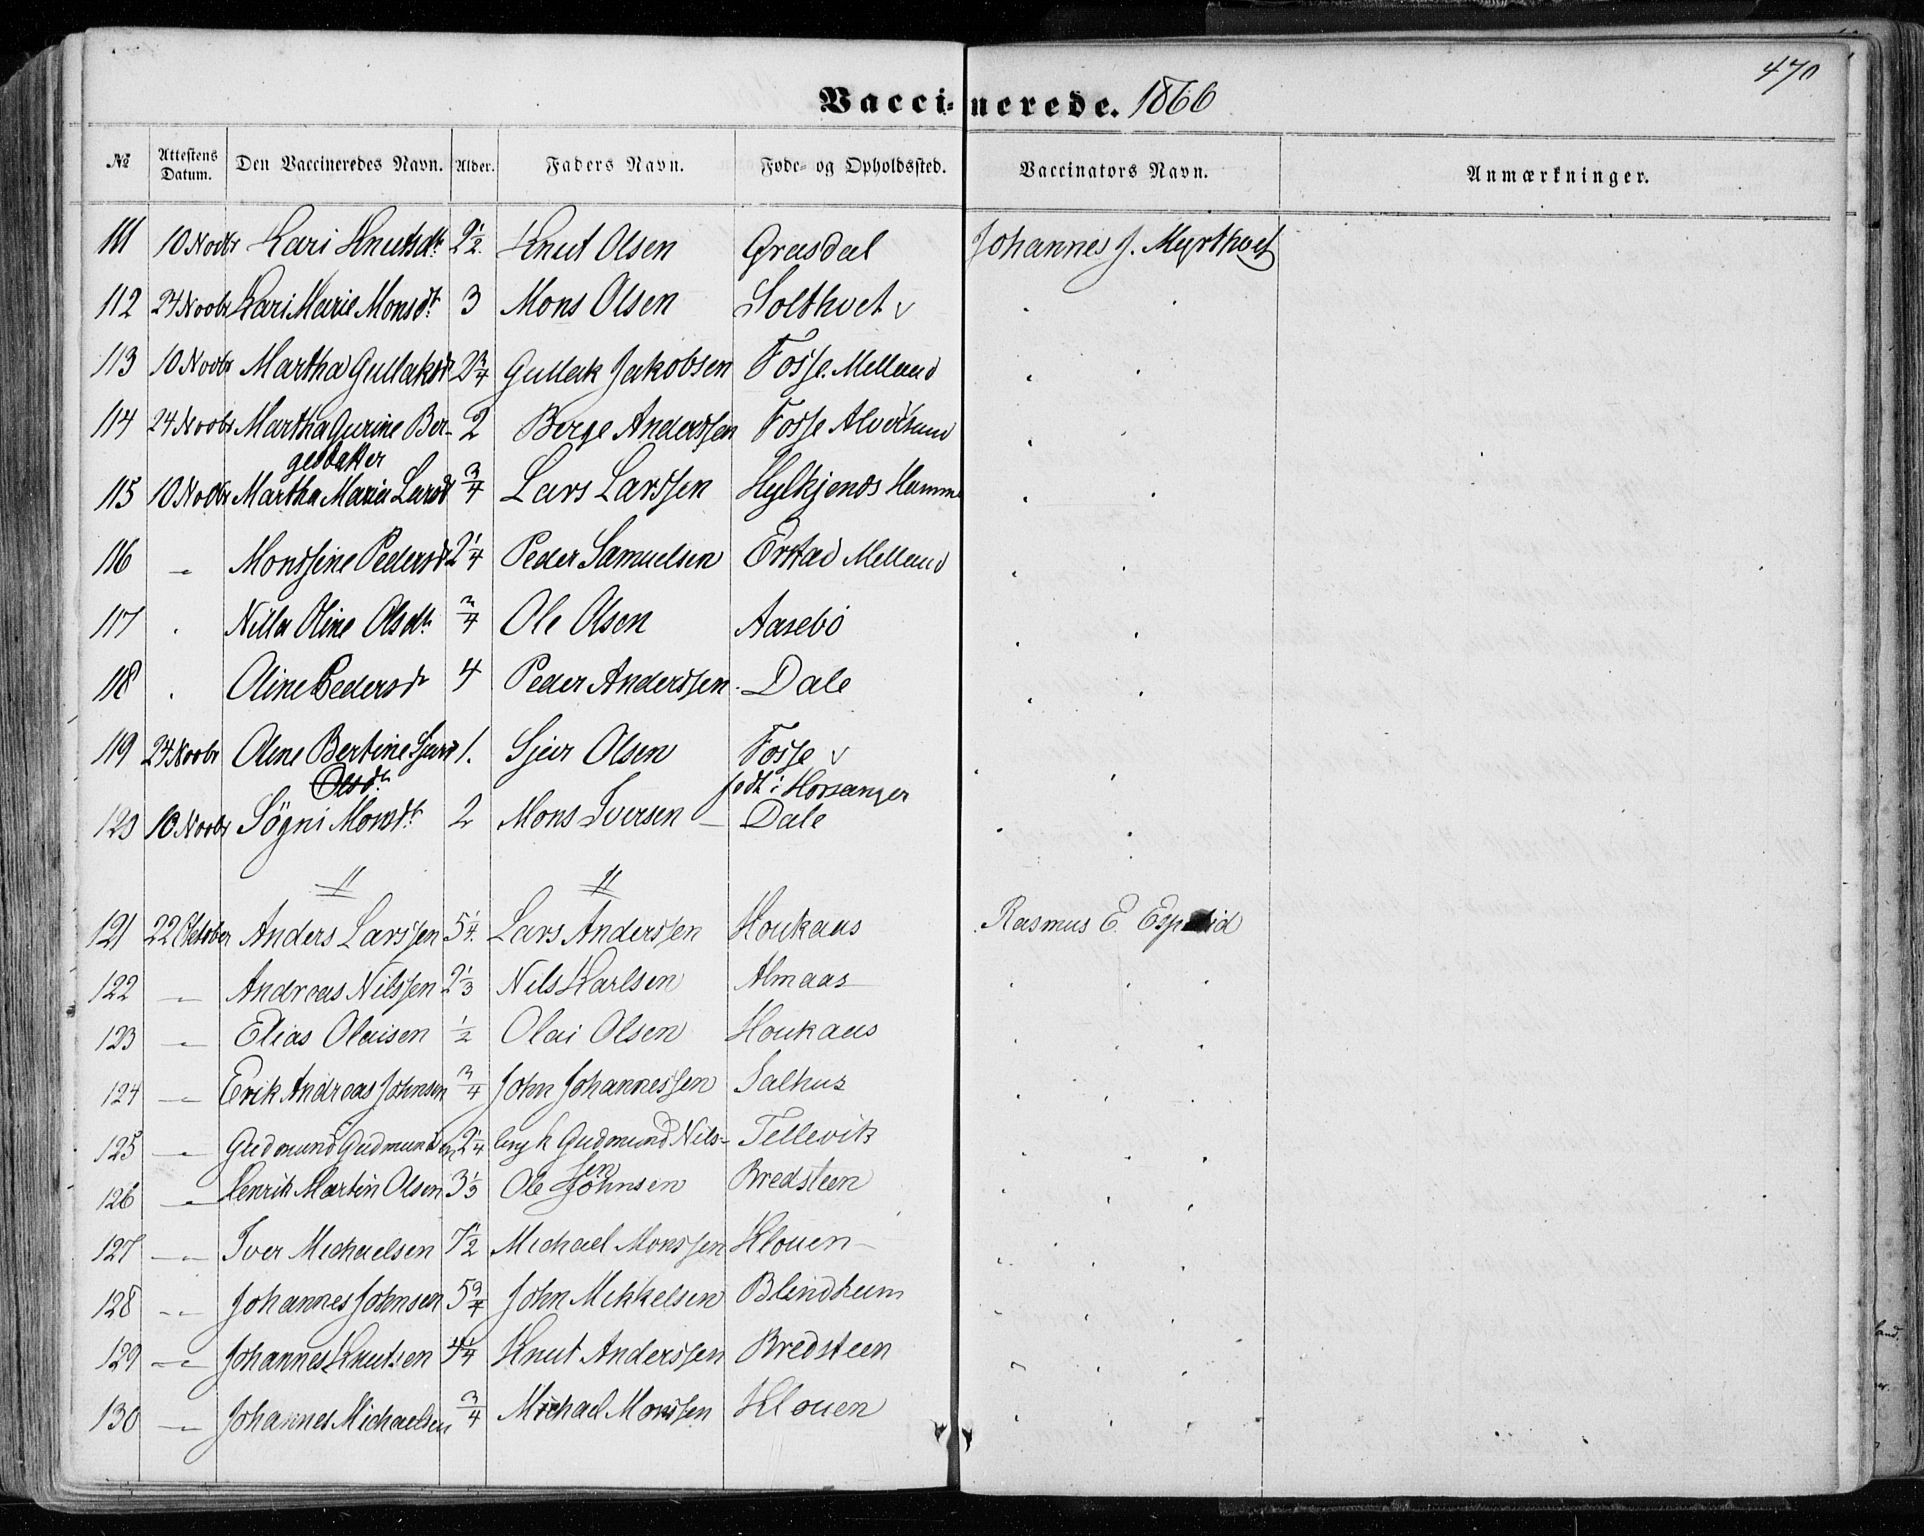 470
Vaccinerede. 1866
№ Attestens Datum. Den Vaccineredes Navn. Alder. Faders Navn. Føde- og Opholdssted. Vaccinators Navn. Anmærkninger.
111 10 Novbr Kari Knutsdr 2 1/2 Knut Olsen Grasdal Johannes J. Myrthvet
112 24 Novbr Kari Marie Monsdr 3 Mons Olsen Solthvet v
113 10 Novbr Martha Gullaksdr 2 3/4 Gullak Jakobsen Fosse. Melland
114 24 Novbr Martha Gurine Ber- 2 Berge Anderssen Fosse Alversund
gesdatter
115 10 Novbr Martha Maria Larsdr 3/4 Lars Larssen Hylkjends Hamme
116 " Monssine Pedersdr 2 1/4 Peder Samuelsen Erstad Melland
117 " Nilla Oline Olsdr 3/4 Ole Olsen Aasebø
118 " Oline Pedersdr 4 Peder Anderssen Dale
119 24 Novbr Olene Bertine Sjur 1. Sjur Olsen Fosse v
Olsdr født i Hosanger
120 10 Novbr Sögni Monsdr 2 Mons Iversen Dale
" "
121 22 Oktober Anders Larssen 5 1/4 Lars Anderssen Houkaas Rasmus E. Espelid
122 " Andreas Nilssen 2 1/3 Nils Karlsen Almaas
123 " Elias Olaisen 1/2 Olai Olsen Houkaas
124 " Erik Andreas Johnsen 3/4 John Johannessen Salhus
125 " Gudmund Gudmundsen 2 1/4 Gudmund Nils- Tellevik
sen
126 " Henrik Martin Olsen 3 1/3 Ole Johnsen Bredsteen
127 " Iver Michaelsen 7 1/2 Michael Monssen Klouen
128 " Johannes Johnsen 5 3/4 John Mikkelsen Blindheim
129 " Johannes Knutsen 4 1/4 Knut Anderssen Bredsteen
130 " Johannes Michaelsen 3/4 Michael Monssen Klouen